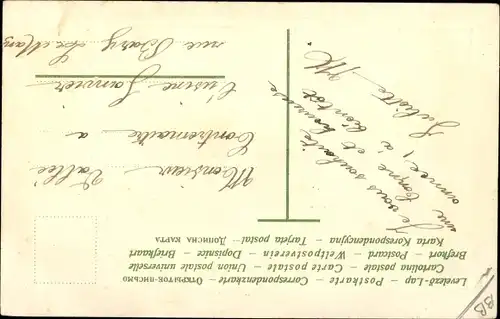 Levelező-Lap — Postkarte — Correspondenzkarte — Открытое-письмо
Cartolina postale — Carte postale — Union postale universelle
Brefkort — Postcard — Weltpostverein — Dopisnice — Briefkaart
Karta Korespondencyjna — Tarjeta postal — Дописна карта
Monsieur Vallé
Contremaître à
l'usine Janvier
rue Bary
Je vous souhaite
une bonne et heureuse
année, à bientôt
Juliette
BB